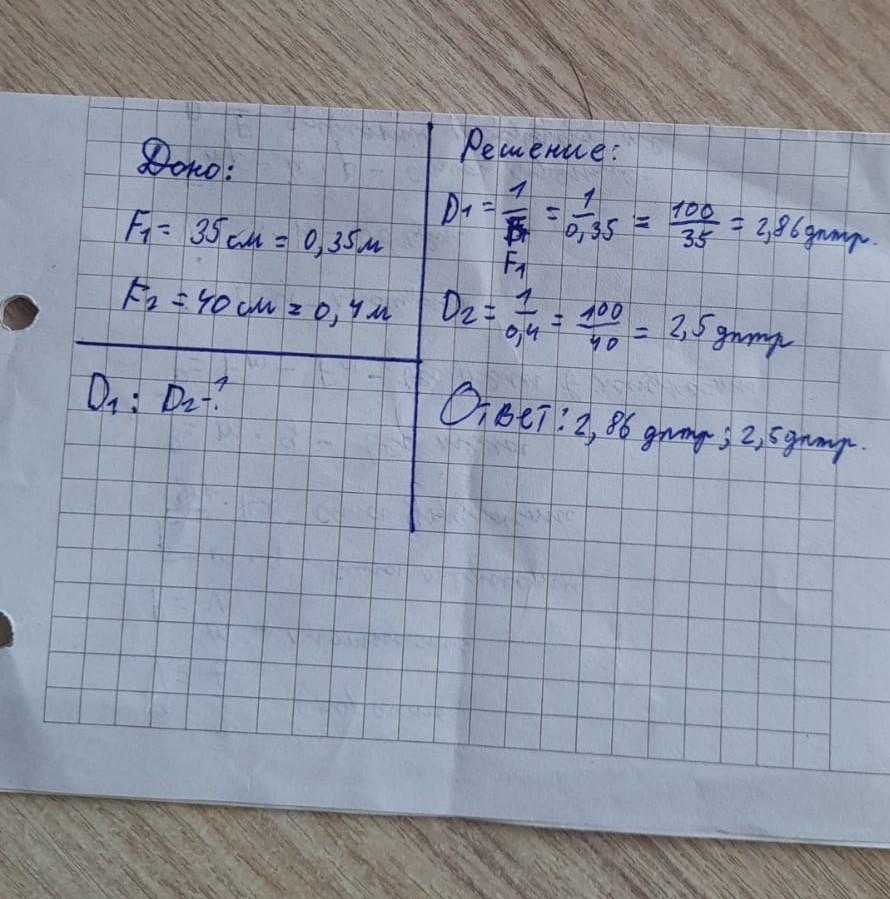 Доно:
F1 = 35 см = 0,35 м
F2 = 40 см = 0,4 м
D1 ; D2 - ?
Решение:
D1 = 1/F1 = 1/0,35 = 100/35 = 2,86 дптр.
D2 = 1/0,4 = 100/40 = 2,5 дптр
Ответ: 2,86 дптр; 2,5 дптр.